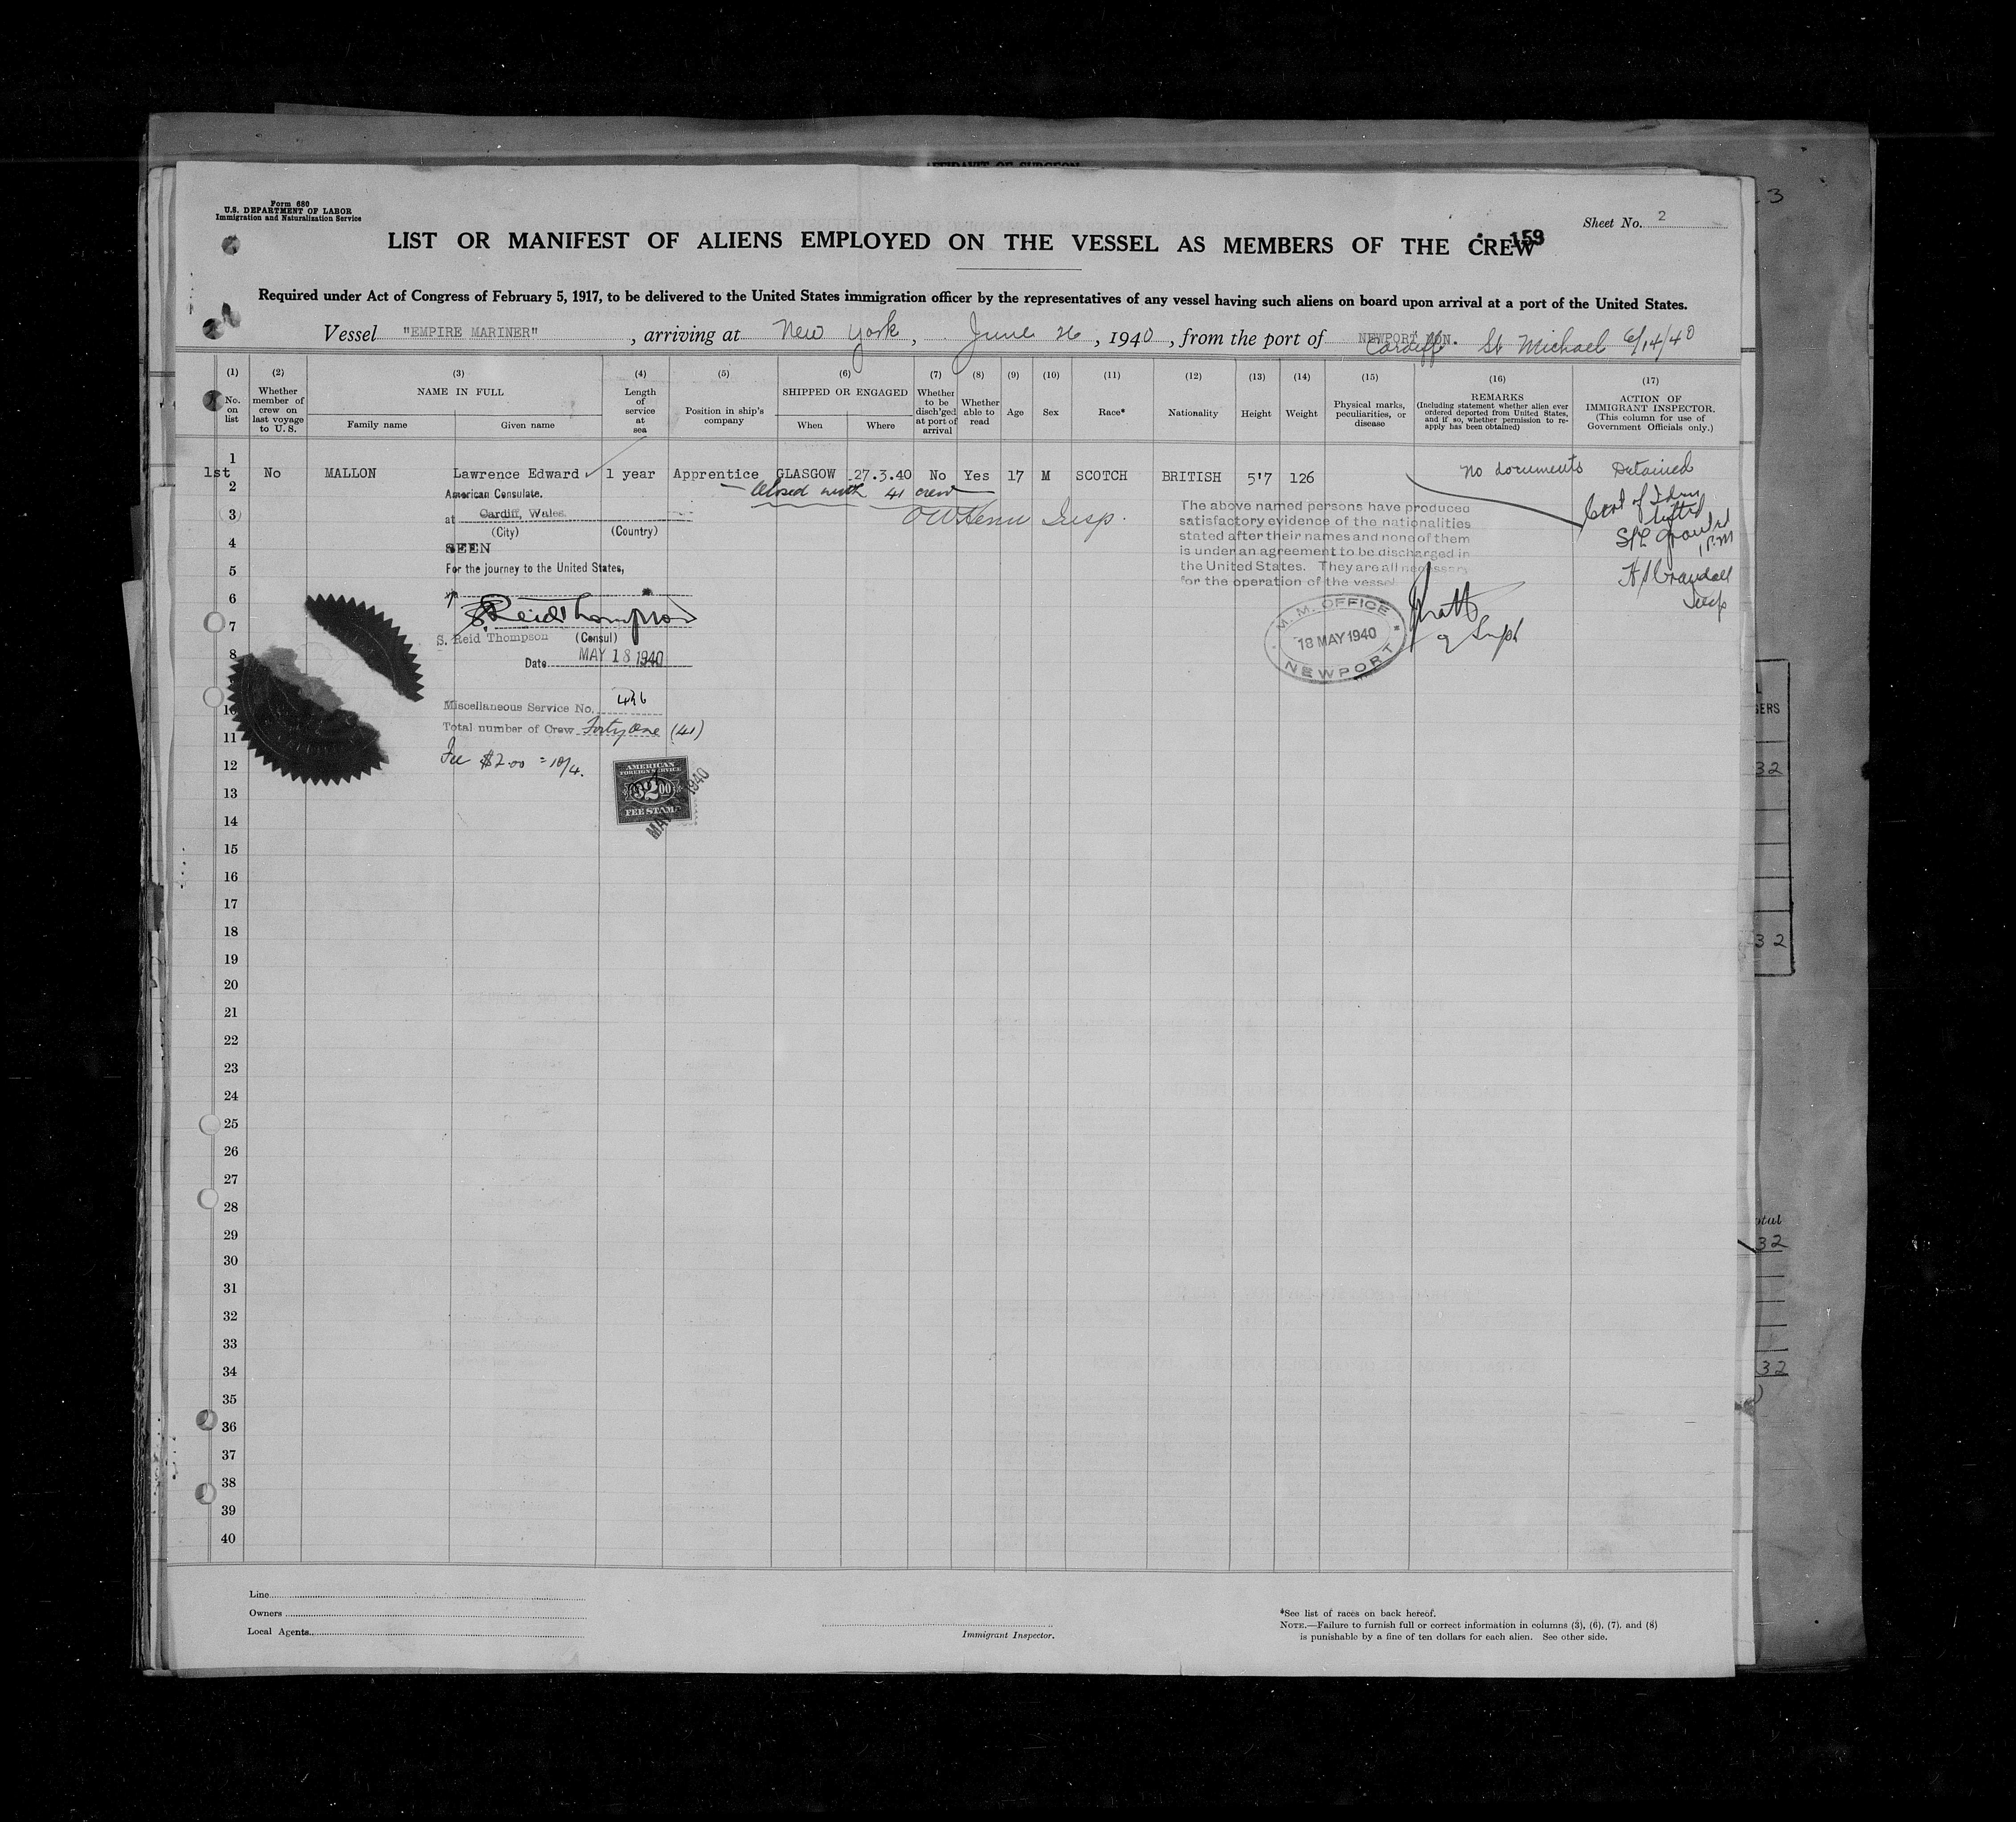 AFFIDAVIT OF SURGEON
3
Form 680
U.S. DEPARTMENT OF LABOR
Immigration and Naturalization Service
Sheet No. 2
LIST OR MANIFEST OF ALIENS EMPLOYED ON THE VESSEL AS MEMBERS OF THE CREW
159
Required under Act of Congress of February 5, 1917, to be delivered to the United States immigration officer by the representatives of any vessel having such aliens on board upon arrival at a port of the United States.
Vessel "EMPIRE MARINER", arriving at New York, June 26, 1940, from the port of NEWPORT MON. Cardiff St Michael 6/14/40
(1) (2) (3) (4) (5) (6) (7) (8) (9) (10) (11) (12) (13) (14) (15) (16) (17)
No. on list
Whether member of crew on last voyage to U. S.
NAME IN FULL
Family name
Given name
Length of service at sea
Position in ship's company
SHIPPED OR ENGAGED
When
Where
Whether to be disch'ged at port of arrival
Whether able to read
Age
Sex
Race*
Nationality
Height
Weight
Physical marks, peculiarities, or disease
REMARKS
(Including statement whether alien ever ordered deported from United States, and if so, whether permission to re-apply has been obtained)
ACTION OF IMMIGRANT INSPECTOR.
(This column for use of Government Officials only.)
1
1st No MALLON Lawrence Edward 1 year Apprentice GLASGOW 27.3.40 No Yes 17 M SCOTCH BRITISH 5'7 126 No documents Detained
2
Closed with 41 crew
Insp.
American Consulate.
at Cardiff, Wales.
(City) (Country)
SEEN
For the journey to the United States,
S. Reid Thompson
S. Reid Thompson (Consul)
Date MAY 18 1940
The above named persons have produced
satisfactory evidence of the nationalities
stated after their names and none of them
is under an agreement to be discharged in
the United States. They are all necessary
for the operation of the vessel
M. M. OFFICE
18 MAY 1940
NEWPORT
Card of Iden
lifted
S/L granted
H S Crandall
Insp
Miscellaneous Service No. 496
Total number of Crew Forty one (41)
Fee $2.00 = 10/4.
AMERICAN
FOREIGN SERVICE
$2.00
FEE STAMP
MAY 1940
3
4
5
6
7
8
10
11
12
13
14
15
16
17
18
19
20
21
22
23
24
25
26
27
28
29
30
31
32
33
34
35
36
37
38
39
40
GERS
32
32
otal
32
32
Line
Owners
Local Agents
Immigrant Inspector.
*See list of races on back hereof.
NOTE.—Failure to furnish full or correct information in columns (3), (6), (7), and (8)
is punishable by a fine of ten dollars for each alien. See other side.